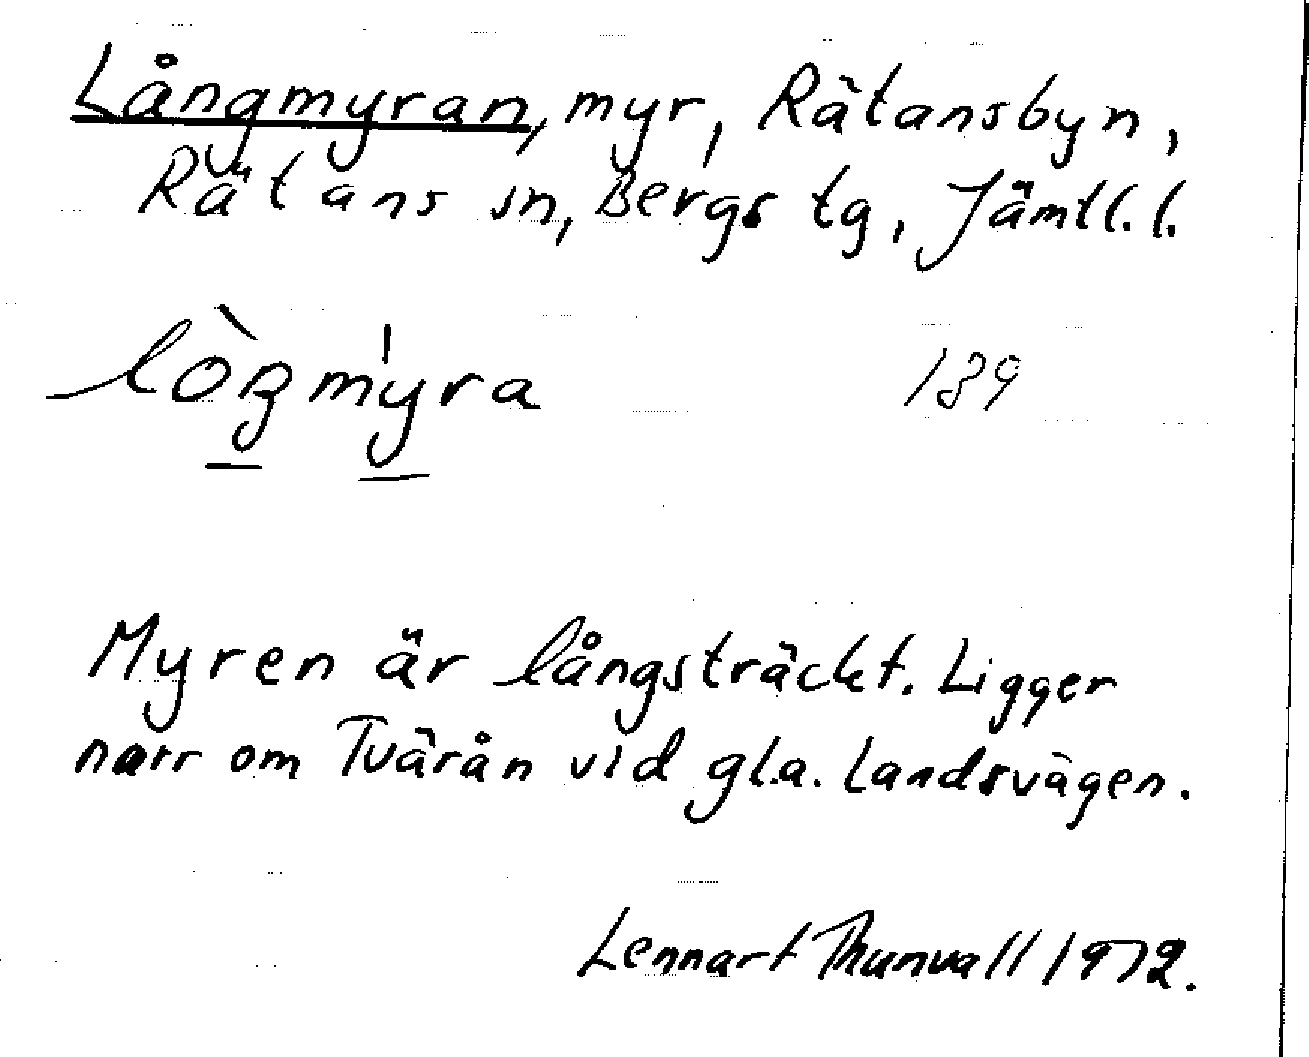 Långmyran, myr, Rätansbyn,
Rätans sn, Bergs tg, Jämtl. l.
lòŋmyra 139
Myren är långsträckt. Ligger
norr om Tvärån vid gl.a. landsvägen.
Lennart Thunvall 1972.